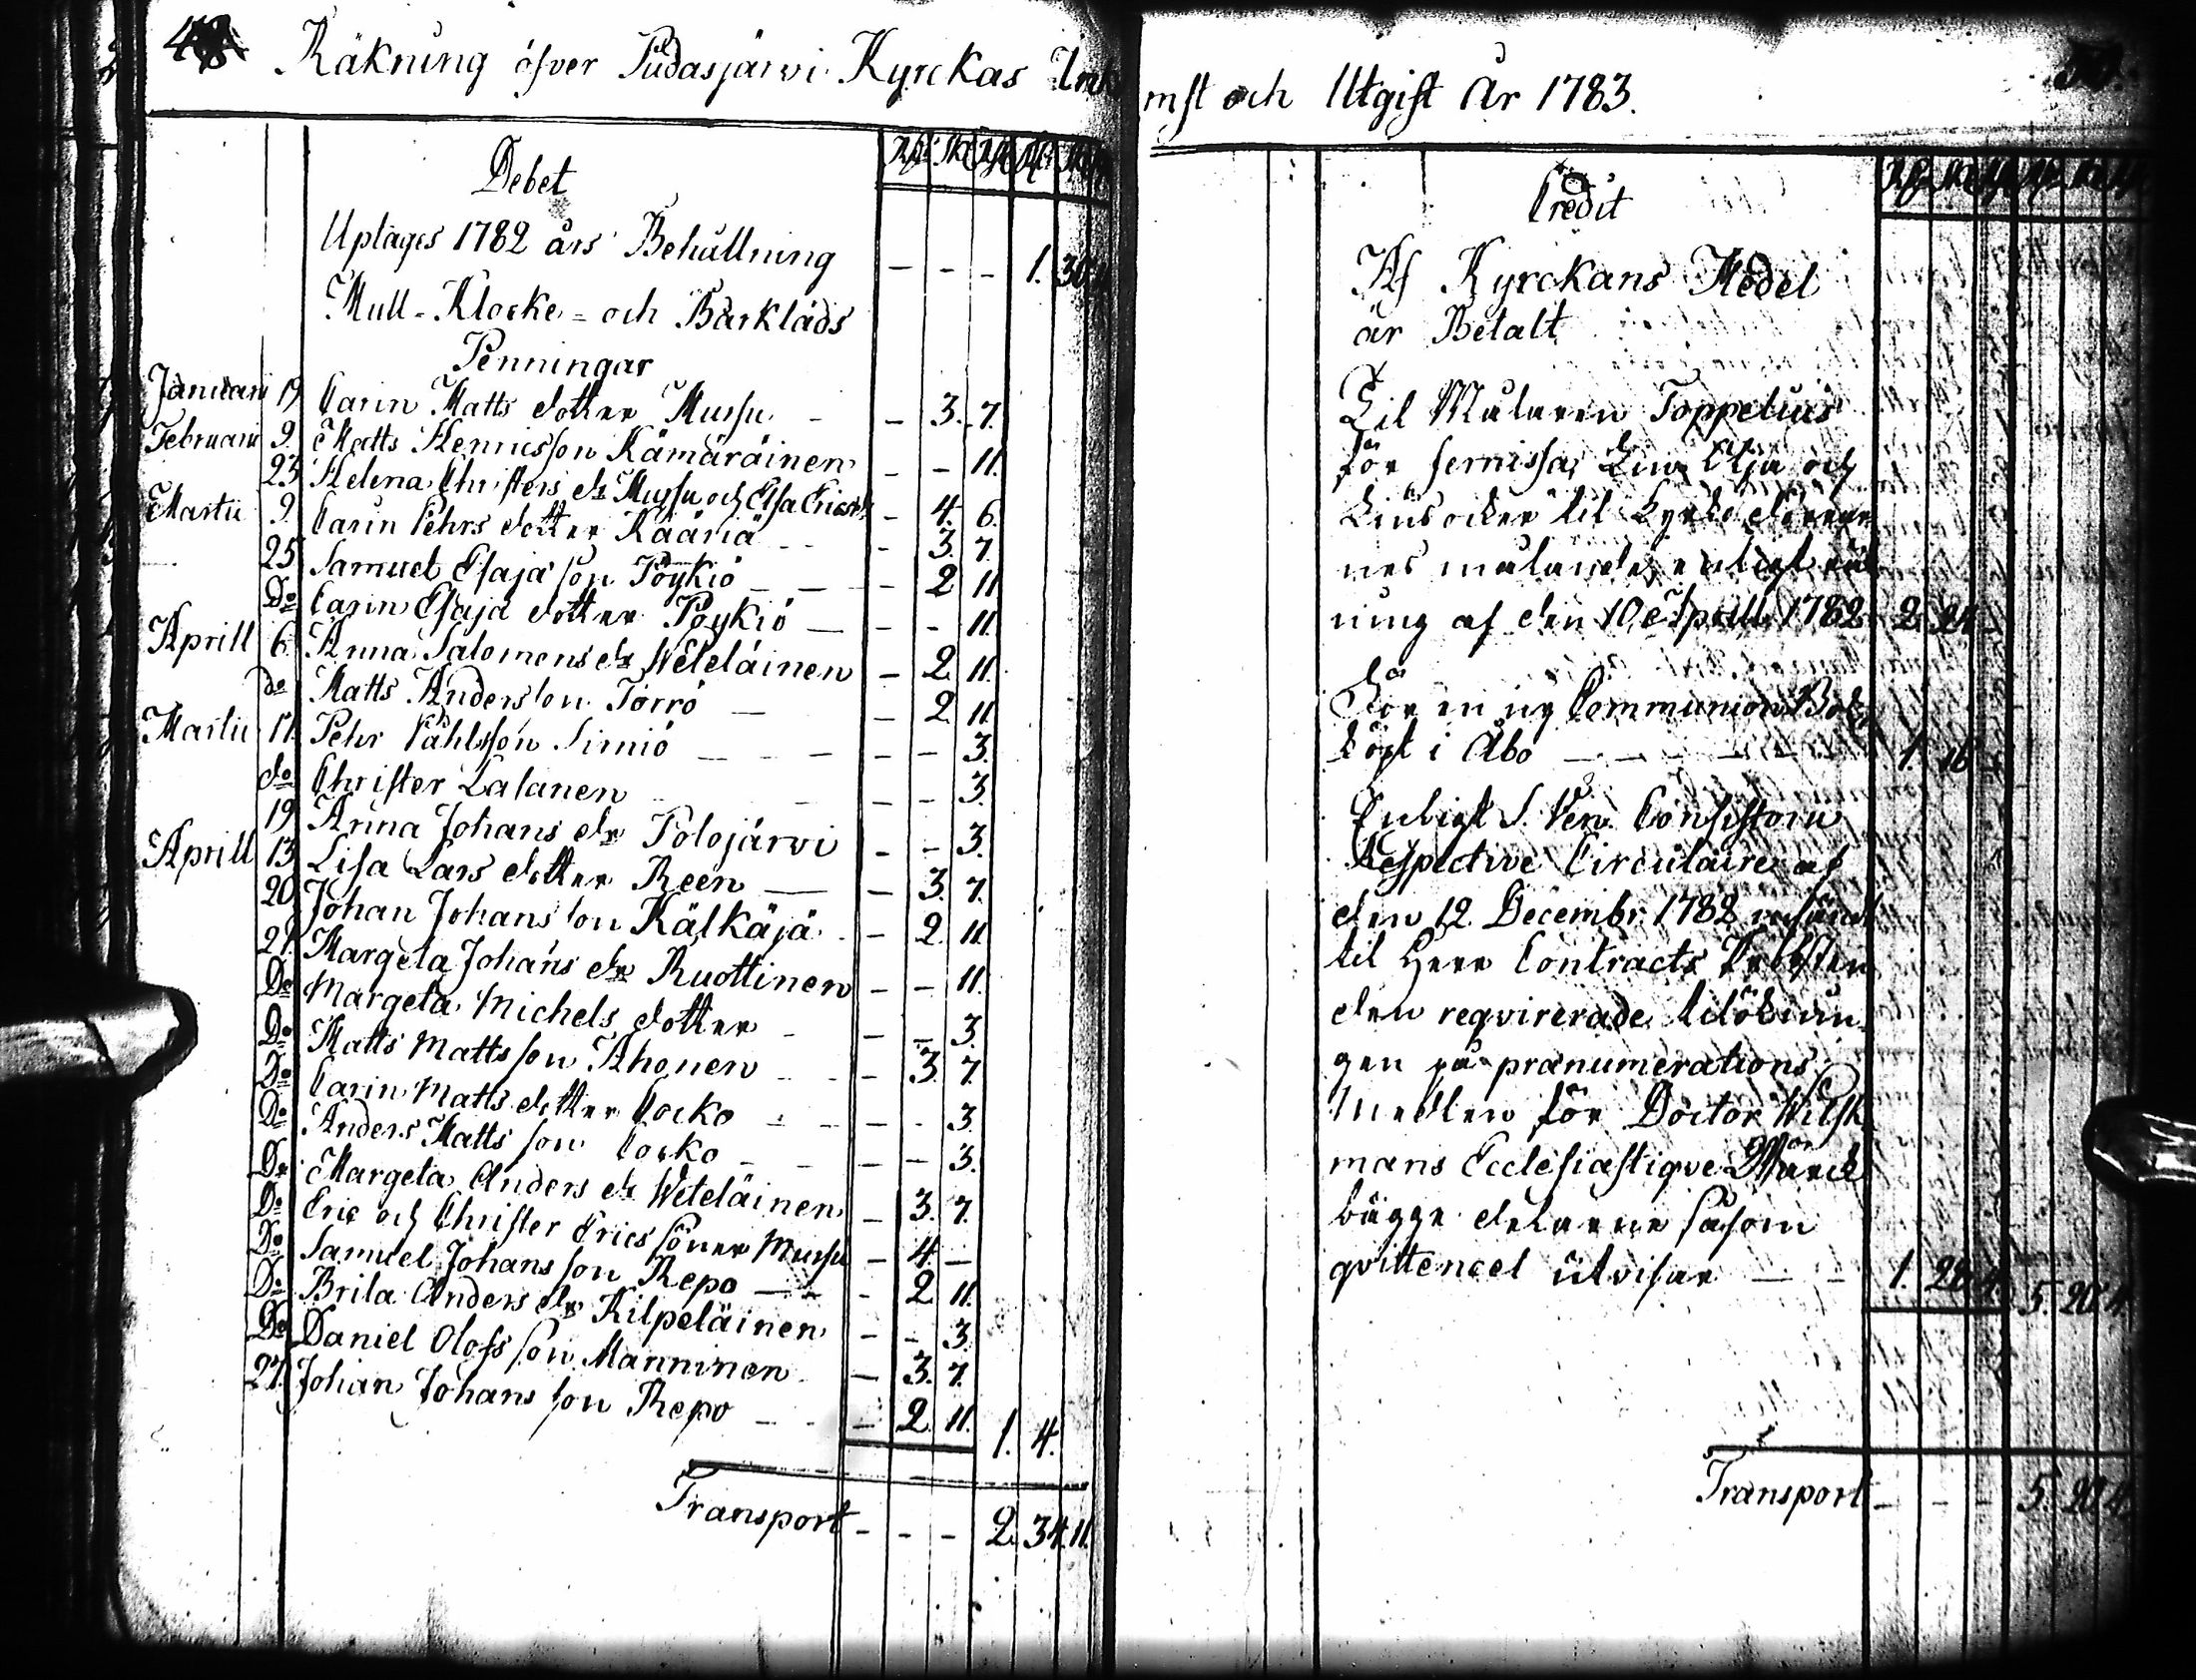 Räkning öfver Pudasjärvi Kyrckas Ink
mst och Utgift År 1783.
Debet
Uplages 1782 års Behållning - - - 1. 30
Mull - Klocke = och Bårklåds
Penningar
Januari 19 Carin Matts dotter Mursu - - 3. 7.
Februarii 9. Matts Henricsson Kämäräinen - - 11.
23 Helena Christers dr Mursu och Elsa Ericsdr - 4. 6.
Martii 9. Carin Pehrs dotter Kääriä - - - 3. 7.
25 Samuel Esaja son Pöykiö - - - 2 11
Do Carin Esaja dotter Pöykiö - - - 11.
Aprill 6 Anna Salomons dr Weteläinen - 2 11.
do Matts Andersson Törrö - - 2 11
Martii 11. Pehr Påhlsson Simiö - - - - 3.
do Christer Lalanen - - 3.
19 Anna Johans dr Polojärvi - - 3.
Aprill 13 Lisa Lars dotter Reen - - 3. 7.
20 Johan Johans son Kälkäjä - - 2. 11.
21. Margeta Johans dr Ruottinen - - 11.
Do Margeta Michels dotter - - - 3.
Do Matts Mattsson Ahonen - - - 3. 7.
Do Carin Matts dotter Cocko - - - - 3.
Do Anders Matts son Cocko - - - - 3.
Do Margeta Anders dr Weteläinen - 3. 7.
Do Eric och Christer Erics söner Mursu - 4. -
Do Samuel Johans son Repo - - - 2 11.
Do Brita Anders dr Kilpeläinen - - 3
Do Daniel Olofs son Manninen - - 3. 7.
27. Johan Johans son Repo - - - 2 11. 1. 4.
Transport - - - 2. 34. 11.
Credit
Af Kyrckans Medel
är Betalt
Til Målaren Toppelius
för fernissa, Lin Olja och
til Kyrko dörrar
nes målande, enligt räk
ning af den 10 Aprill 1782 2. 24 -
För en ny Communion Bok
köpt i Åbo - - - - 1. 16
Enligt S. Ven. Consistorii
Respective Circulaire af
den 12 Decembr. 1782
til Herr Contracts Probsten
den reqvirerade tilöknin
gen på prænumerations
medlen för Doctor Wilsk
mans Ecclesiastiqve Wärck
bägge delarne såsom
qvittencel utvisar - - 1. 28 4. 5. 20 4.
Transport - - - 5. 20 4.